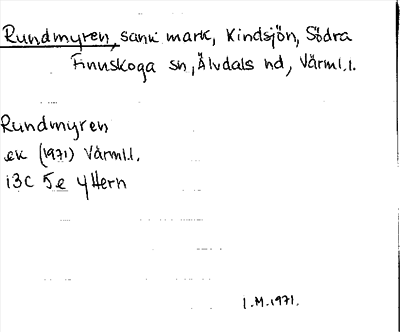 Rundmyren, sank mark, Kindsjön, Södra
Finnskoga sn, Älvdals hd, Värml.l.
Rundmyren
ek (1971) Värml.l.
13C 5e Yttern
I.M.1971.